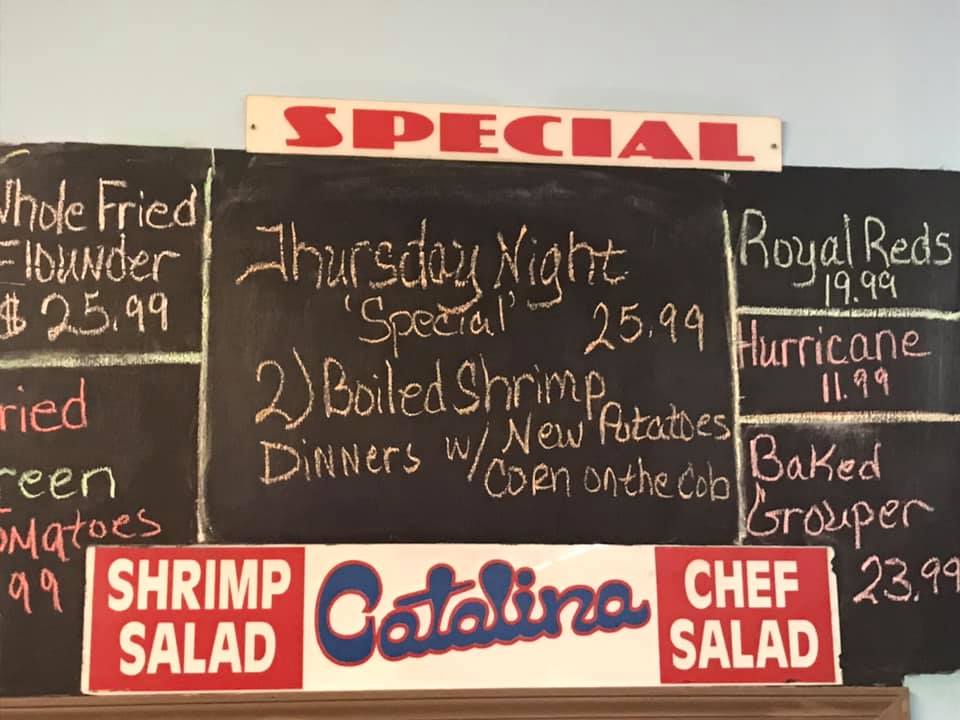 SPECIAL
Whole Fried
Flounder
$ 25.99
ried
reen
omatoes
99
Thursday Night
'Special' 25.99
2) Boiled Shrimp
Dinners w/ New Potatoes
Corn on the Cob
Royal Reds
19.99
Hurricane
11.99
Baked
Grouper
23.99
SHRIMP
SALAD
Catalina
CHEF
SALAD